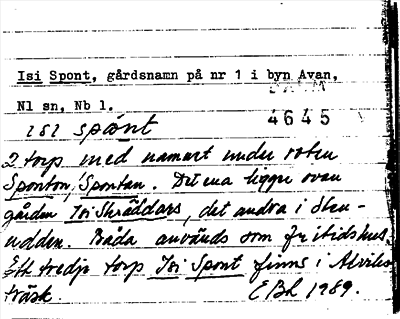 Isi Spont, gårdsnamn på nr 1 i byn Avan,
Nl sn, Nb l.
4645
isi spònt
2 torp med namnet under roten
Sponton, Spontan. Det ena ligger ovan
gården Isi Skräddars, det andra i Sten-
udden. Båda används som fritidshus.
Ett tredje torp Isi Spont finns i Alviks-
träsk. EBk 1989.